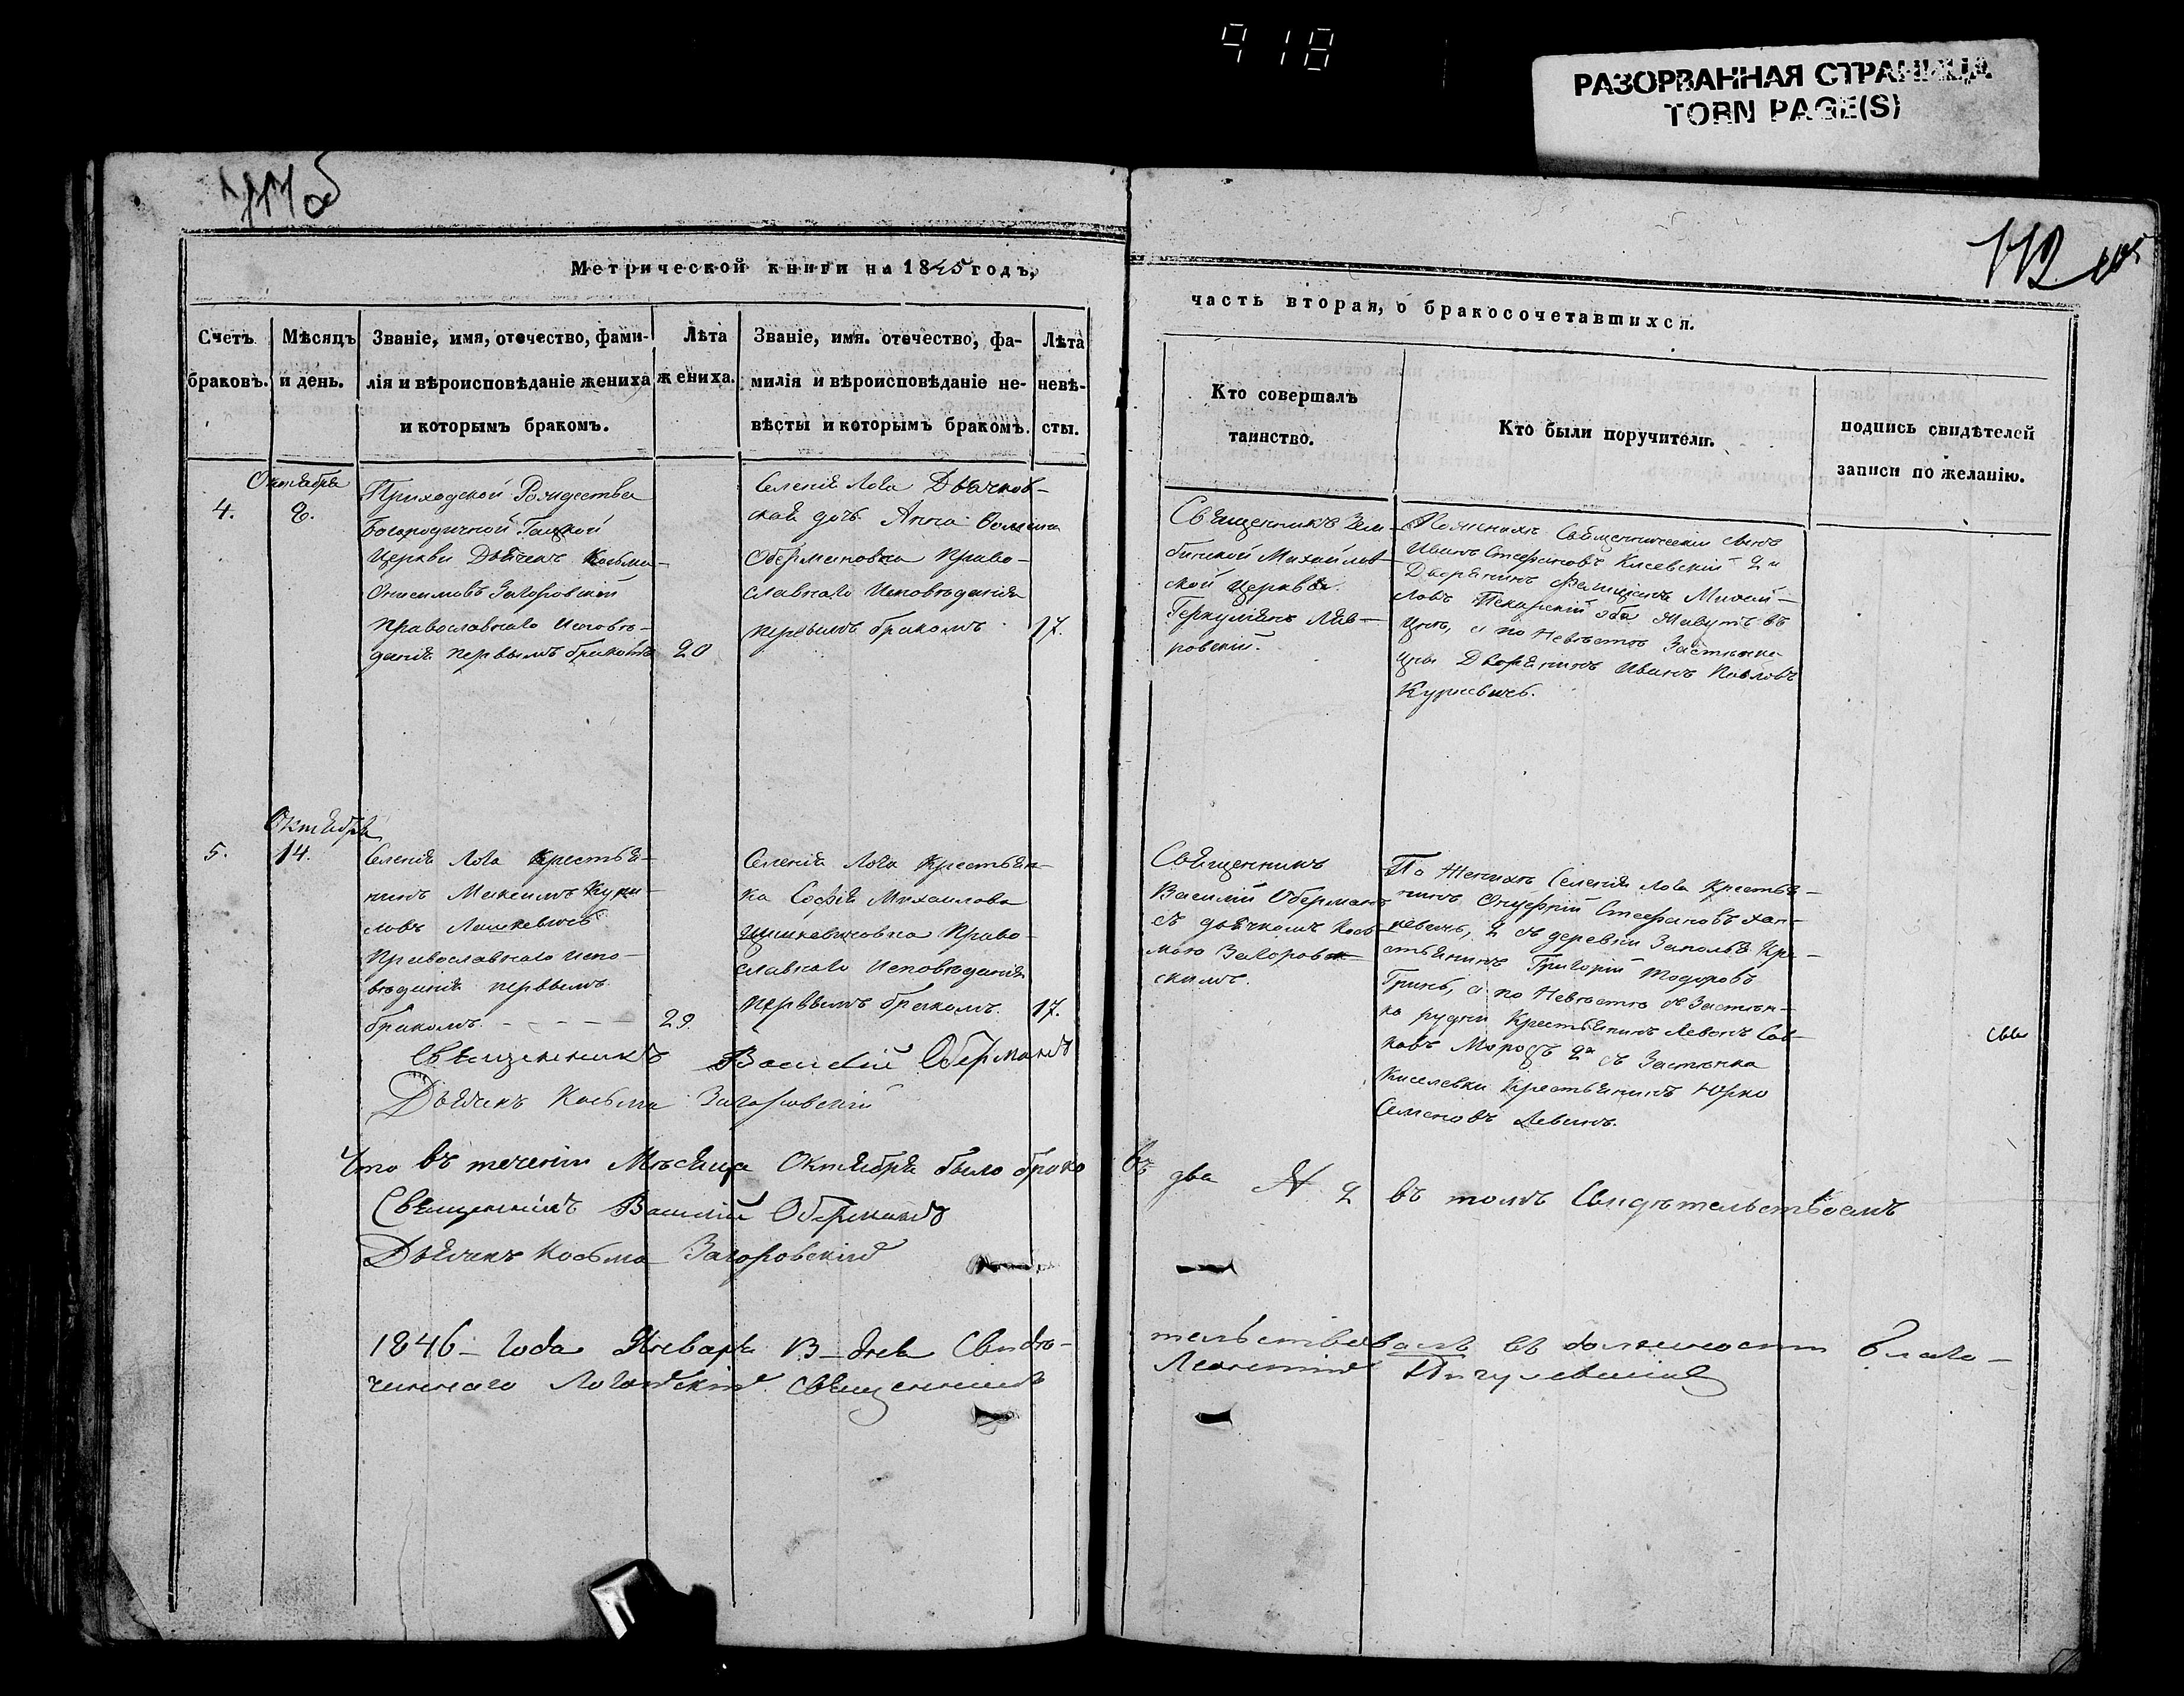 918
РАЗОРВАННАЯ СТРАНИЦА
TORN PAGE(S)
112
Метрической книги на 1845 годъ,
часть вторая, о бракосочетавшихся.
Счетъ браковъ.
Мѣсяцъ и день.
Званіе, имя, отечество, фами-
лія и вѣроисповѣданіе жениха
и которымъ бракомъ.
Лѣта жениха.
Званіе, имя. отечество, фа-
милія и вѣроисповѣданіе не-
вѣсты и которымъ бракомъ.
Лѣта невѣ-
сты.
Кто совершалъ
таинство.
Кто были поручители.
подпись свидѣтелей
записи по желанію.
4.
Октября
8.
Приходской Рождества
Богородичной
Церкви Дьячекъ Косьма
Онисимовъ Загоровскій
Православнаго Исповѣ-
данія первымъ бракомъ
20
Селенія Лога Дьячков-
ская дочь Анна
Обермановна Право-
славнаго Исповѣданія
первымъ бракомъ
17.
Священникъ
Михайлов-
ской Церкви
ровскій.
Священническій сынъ
Иванъ Стефановъ Киевскій 2й
Дворянинъ
оба живутъ въ
а по Невѣстѣ
Дворянинъ Иванъ Павловъ
5.
Октября
14.
Селенія Лога Крестья-
нинъ Максимъ
Православнаго Испо-
вѣданія первымъ
бракомъ.
29.
Селенія Лога Крестьян-
ка Софія Михаилова
Право-
славнаго Исповѣданія
первымъ бракомъ.
17.
Священникъ
Василій Оберманъ
съ дьячкомъ Кось-
мою Загоров-
скимъ.
По Женихѣ Селенія Лога Крестья-
нинъ Онуфрій Стефановъ Хац-
кевичь, 2 съ деревни Заполья Кре-
стьянинъ Григорій Тодоровъ
Гринь, а по Невѣстѣ съ Застѣн-
ка рудни Крестьянинъ Левонъ Сав-
ковъ Морозъ 2й съ Застѣнка
Киселевки Крестьянинъ Юрко
Семеновъ Левинъ.
Священникъ Василій Оберманъ
Дьячекъ Косьма Загоровскій
Что въ теченіи Мѣсяца Октября было брако
въ два № 2 въ томъ Свидѣтельствуемъ
Священникъ Василій Оберманъ
Дьячекъ Косьма Загоровскій
1846 года Января 13 дня Свидѣ-
тельствовалъ въ должности Благо-
чиннаго Логойскій Священникъ
Леонтій Пигулевскій